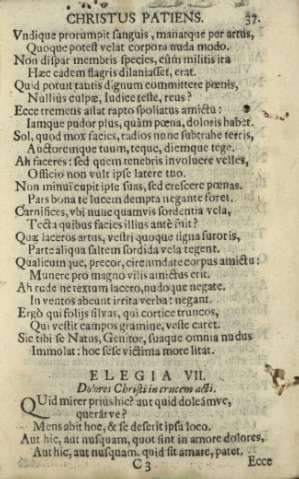 CHRISTUS PATIENS. 37.
Vndique prorumpit sanguis, manatque per artus,
Quoque potest velat corpora nuda modo.
Non dispar membris species, cùm militis ira
Hæc eadem flagris dilaniasset, erat.
Quid potuit tantis dignum committere pœnis,
Nullius culpæ, Iudice teste, reus?
Ecce tremens astat rapto spoliatus amictu:
Iamque pudor plus, quàm pœna, doloris habet.
Sol, quod mox facies, radios nunc subtrahe terris,
Auctoremque tuum, teque, diemque tege.
Ah faceres: sed quem tenebris involvere velles,
Officio non vult ipse latere tuo.
Non minui cupit ipte suas, sed crescere pœnas.
Pars bona te lucem dempta negante foret.
Carnifices, vbi nunc quamvis sordentia vela,
Tecta quibus facies illius antè fuit?
Quæ laceros artus, vestri quoque signa furoris,
Parte aliqua saltem sordida vela tegent.
Qualicumque, precor, circumdate corpus amictu:
Munere pro magno vilis amictus erit.
Ah rude ne textum lacero, nudoque negate.
In ventos abeunt irrita verba: negant.
Ergò qui folijs silvas, qui cortice truncos,
Qui vestit campos gramine, veste caret.
Sic tibi se Natus, Genitor, suaque omnia nudus
Immolat: hoc sese victima more litat.
ELEGIA VII.
Dolores Christi in crucem acti.
QUid mirer priùs hîc? aut quid doleámve,
querárve?
Mens abit hoc, & se deserit ipsa loco.
Aut hic, aut nusquam, quot sint in amore dolores,
Aut hic, aut nusquam, quid sit amare, patet.
C 3 Ecce